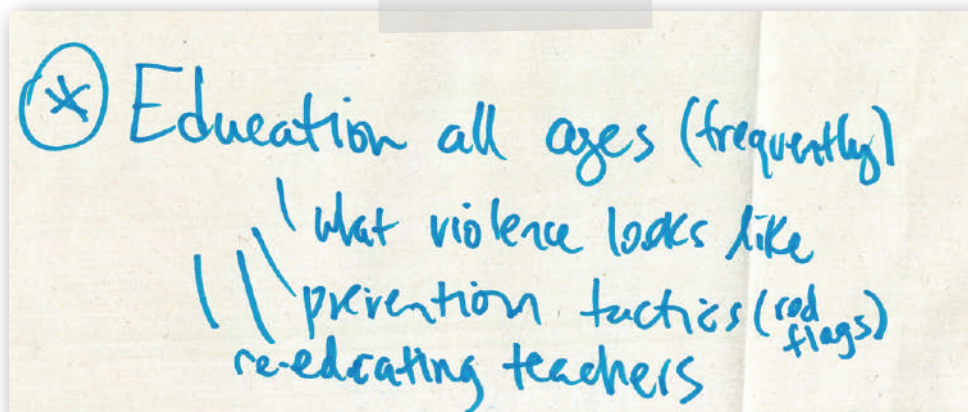 * Education all ages (frequently)
\ what violence looks like
\ prevention tactics (red flags)
\\ re-educating teachers